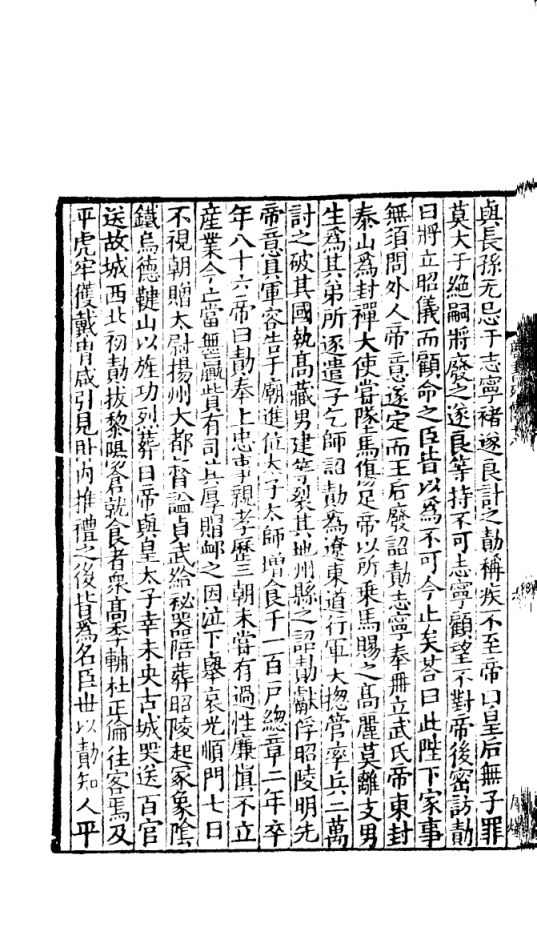 與長孫无忌于志寧褚遂良計之勣稱疾不至帝曰皇后無子罪
莫大于絕嗣將廢之遂良等持不可志寧顧望不對帝後密訪勣
曰將立昭儀而顧命之臣皆以爲不可今止矣荅曰此陛下家事
無須問外人帝意遂定而王后廢詔勣志寧奉冊立武氏帝東封
泰山爲封禪大使嘗墜馬傷足帝以所乘馬賜之高麗莫離支男
生爲其弟所逐遣子乞師詔勣爲遼東道行軍大揔管率兵二萬
討之破其國執高藏男建等裂其地州縣之詔勣獻俘昭陵明先
帝意具軍容告于廟進位太子太師增食千一百戶總章二年卒
年八十六帝曰勣奉上忠事親孝歷三朝未嘗有過性廉愼不立
産業今亡當無贏貲有司其厚賵卹之因泣下舉哀光順門七日
不視朝贈太尉揚州大都督諡貞武給祕器陪葬昭陵起冢象陰
鐵烏德鞬山以旌功烈葬日帝與皇太子幸未央古城哭送百官
送故城西北初勣拔黎陽倉就食者衆高季輔杜正倫往客焉及
平虎牢獲戴胄咸引見臥內推禮之後皆爲名臣世以勣知人平